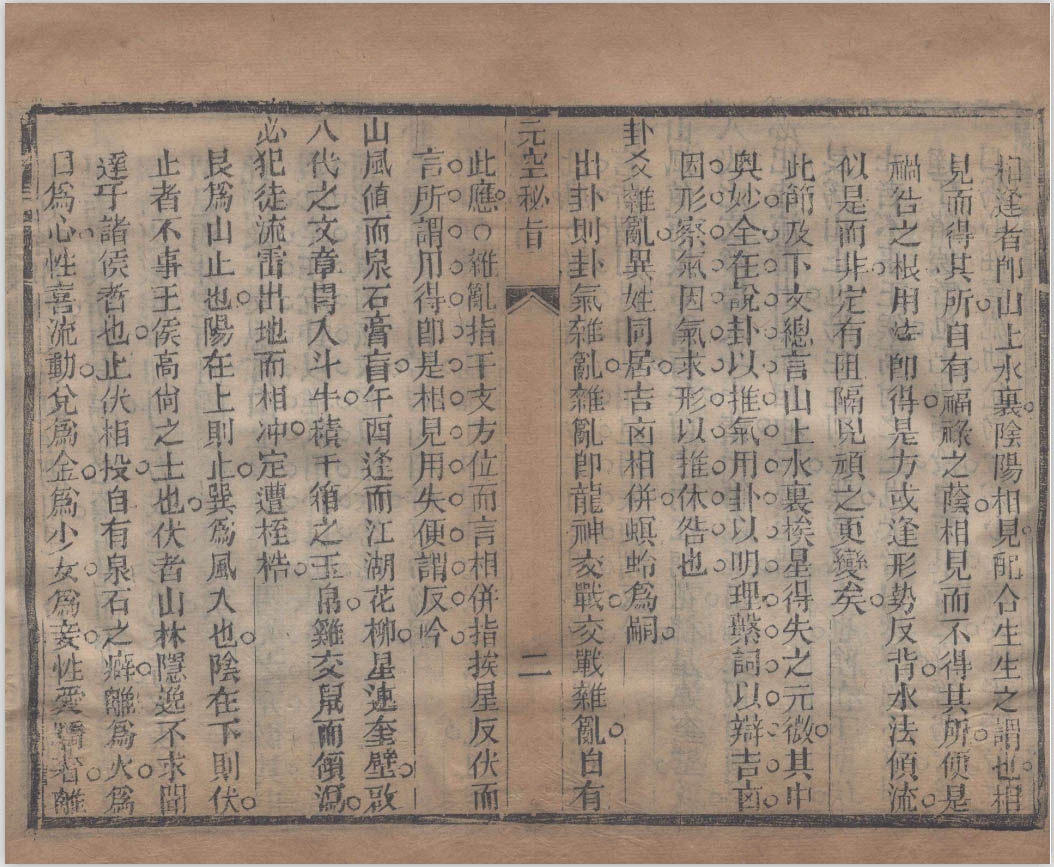 相逢者卽山上水裏陰陽相見配合生生之謂也相
見而得其所自有福祿之蔭相見而不得其所便是
禍咎之根用法卽得是方或逢形勢反背水法傾流
似是而非定有阻隔兇頑之更變矣
此節及下文總言山上水裏挨星得失之元微其中
奥妙全在說卦以推氣用卦以明理繫詞以辯吉凶
因形察氣因氣求形以推休咎也
卦爻雜亂異姓同居吉凶相併螟蛉爲嗣
出卦則卦氣雜亂雜亂卽龍神交戰交戰雜亂自有
元空秘旨
二
此應○雜亂指干支方位而言相併指挨星反伏而
言所謂用得卽是相見用失便謂反吟
山風値而泉石膏肓午酉逢而江湖花柳星連奎壁啟
八代之文章胃入斗牛積千箱之玉帛雞交鼠而傾瀉
必犯徒流雷出地而相冲定遭桎梏
艮爲山止也陽在上則止巽爲風入也陰在下則伏
止者不事王侯高尙之士也伏者山林隱逸不求聞
達于諸侯者也止伏相投自有泉石之癖離爲火爲
日爲心性喜流動兌爲金爲少女爲妾性愛 者離